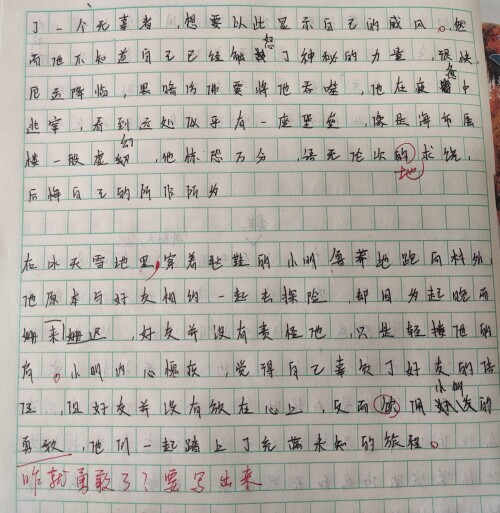 了一个无辜者,想要以此显示自己的威风。然
而他不知道自己已经触怒了神秘的力量,很快,
厄运降临,黑暗仿佛要将他吞噬,他在夜中
逃窜,看到远处似乎有一座堡垒,像是海市蜃
楼一般虚幻,他惊恐万分,语无论次的地求饶,
后悔自己的所作所为
在冰天雪地里,穿着毡鞋的小明舞地跑向村外,
他原本与好友相约一起去探险,却因为起晚而
姗来姗迟,好友并没有责怪他,只是轻捶他的
肩。小明内心惭疚,觉得自己辜负了好友的信
任,但好友并没有放在心上,反而佩小明的
勇敢,他们一起踏上了充满未知的旅程。
咋就勇敢了?要写出来